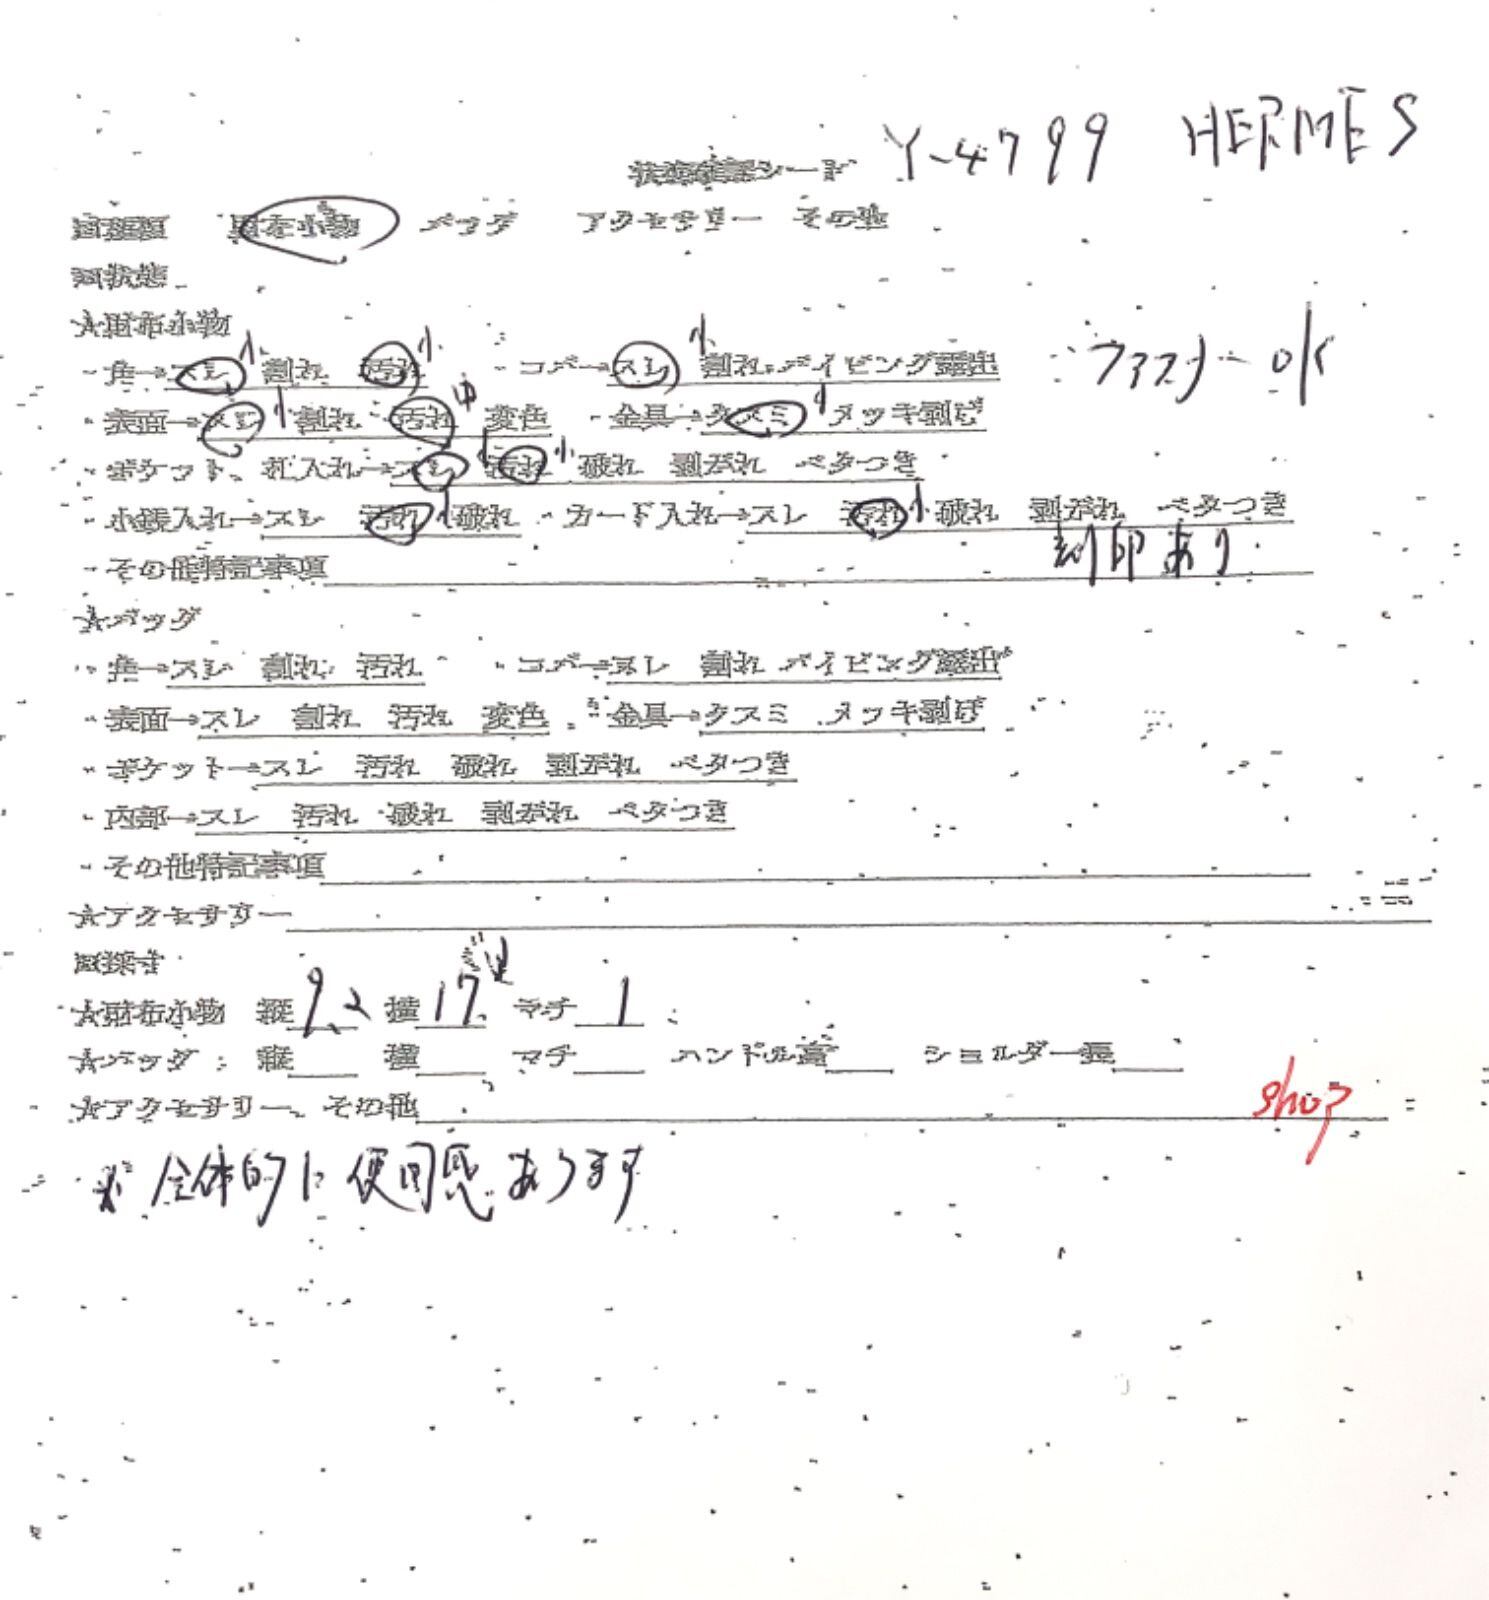 状態確認シート Y-4799 HERMES
□種類 財布小物 バッグ アクセサリー その他
□状態
☆財布小物
・角→スレ小 割れ 汚れ小 ・コバ→スレ小 割れ パイピング露出 ファスナーOK
・表面→スレ小 割れ 汚れ中 変色 ・金具→クスミ小 メッキ剥げ
・ポケット、札入れ→スレ小 汚れ小 破れ 剥がれ ベタつき
・小銭入れ→スレ 汚れ小 破れ ・カード入れ→スレ 汚れ小 破れ 剥がれ ベタつき
・その他特記事項 刻印あり
☆バッグ
・角→スレ 割れ 汚れ ・コバ→スレ 割れ パイピング露出
・表面→スレ 割れ 汚れ 変色 ・金具→クスミ メッキ剥げ
・ポケット→スレ 汚れ 破れ 剥がれ ベタつき
・内部→スレ 汚れ 破れ 剥がれ ベタつき
・その他特記事項
☆アクセサリー
□採寸
☆財布小物 縦9.2 横17. マチ1
☆バッグ 縦 横 マチ ハンドル高 ショルダー長
☆アクセサリー、その他 shop
※全体的に使用感あります